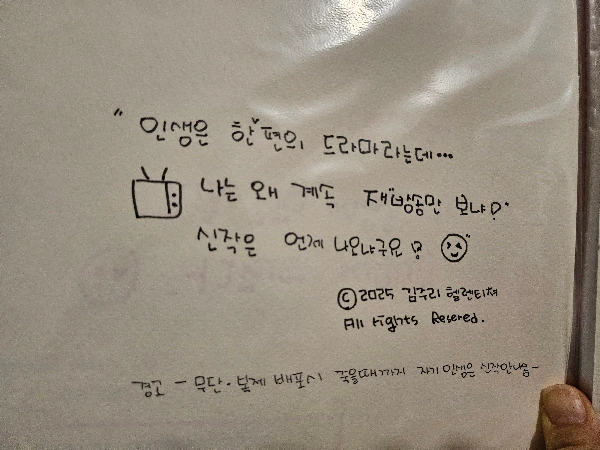 " 인생은 한편의 드라마라는데...
나는 왜 계속 재방송만 보냐?"
신작은 언제 나오냐구요?
©2025 김주리 헬렌티쳐
All rights Resered.
경고 - 무단·복제 배포시 죽을때까지 자기인생은 신작안나옴-